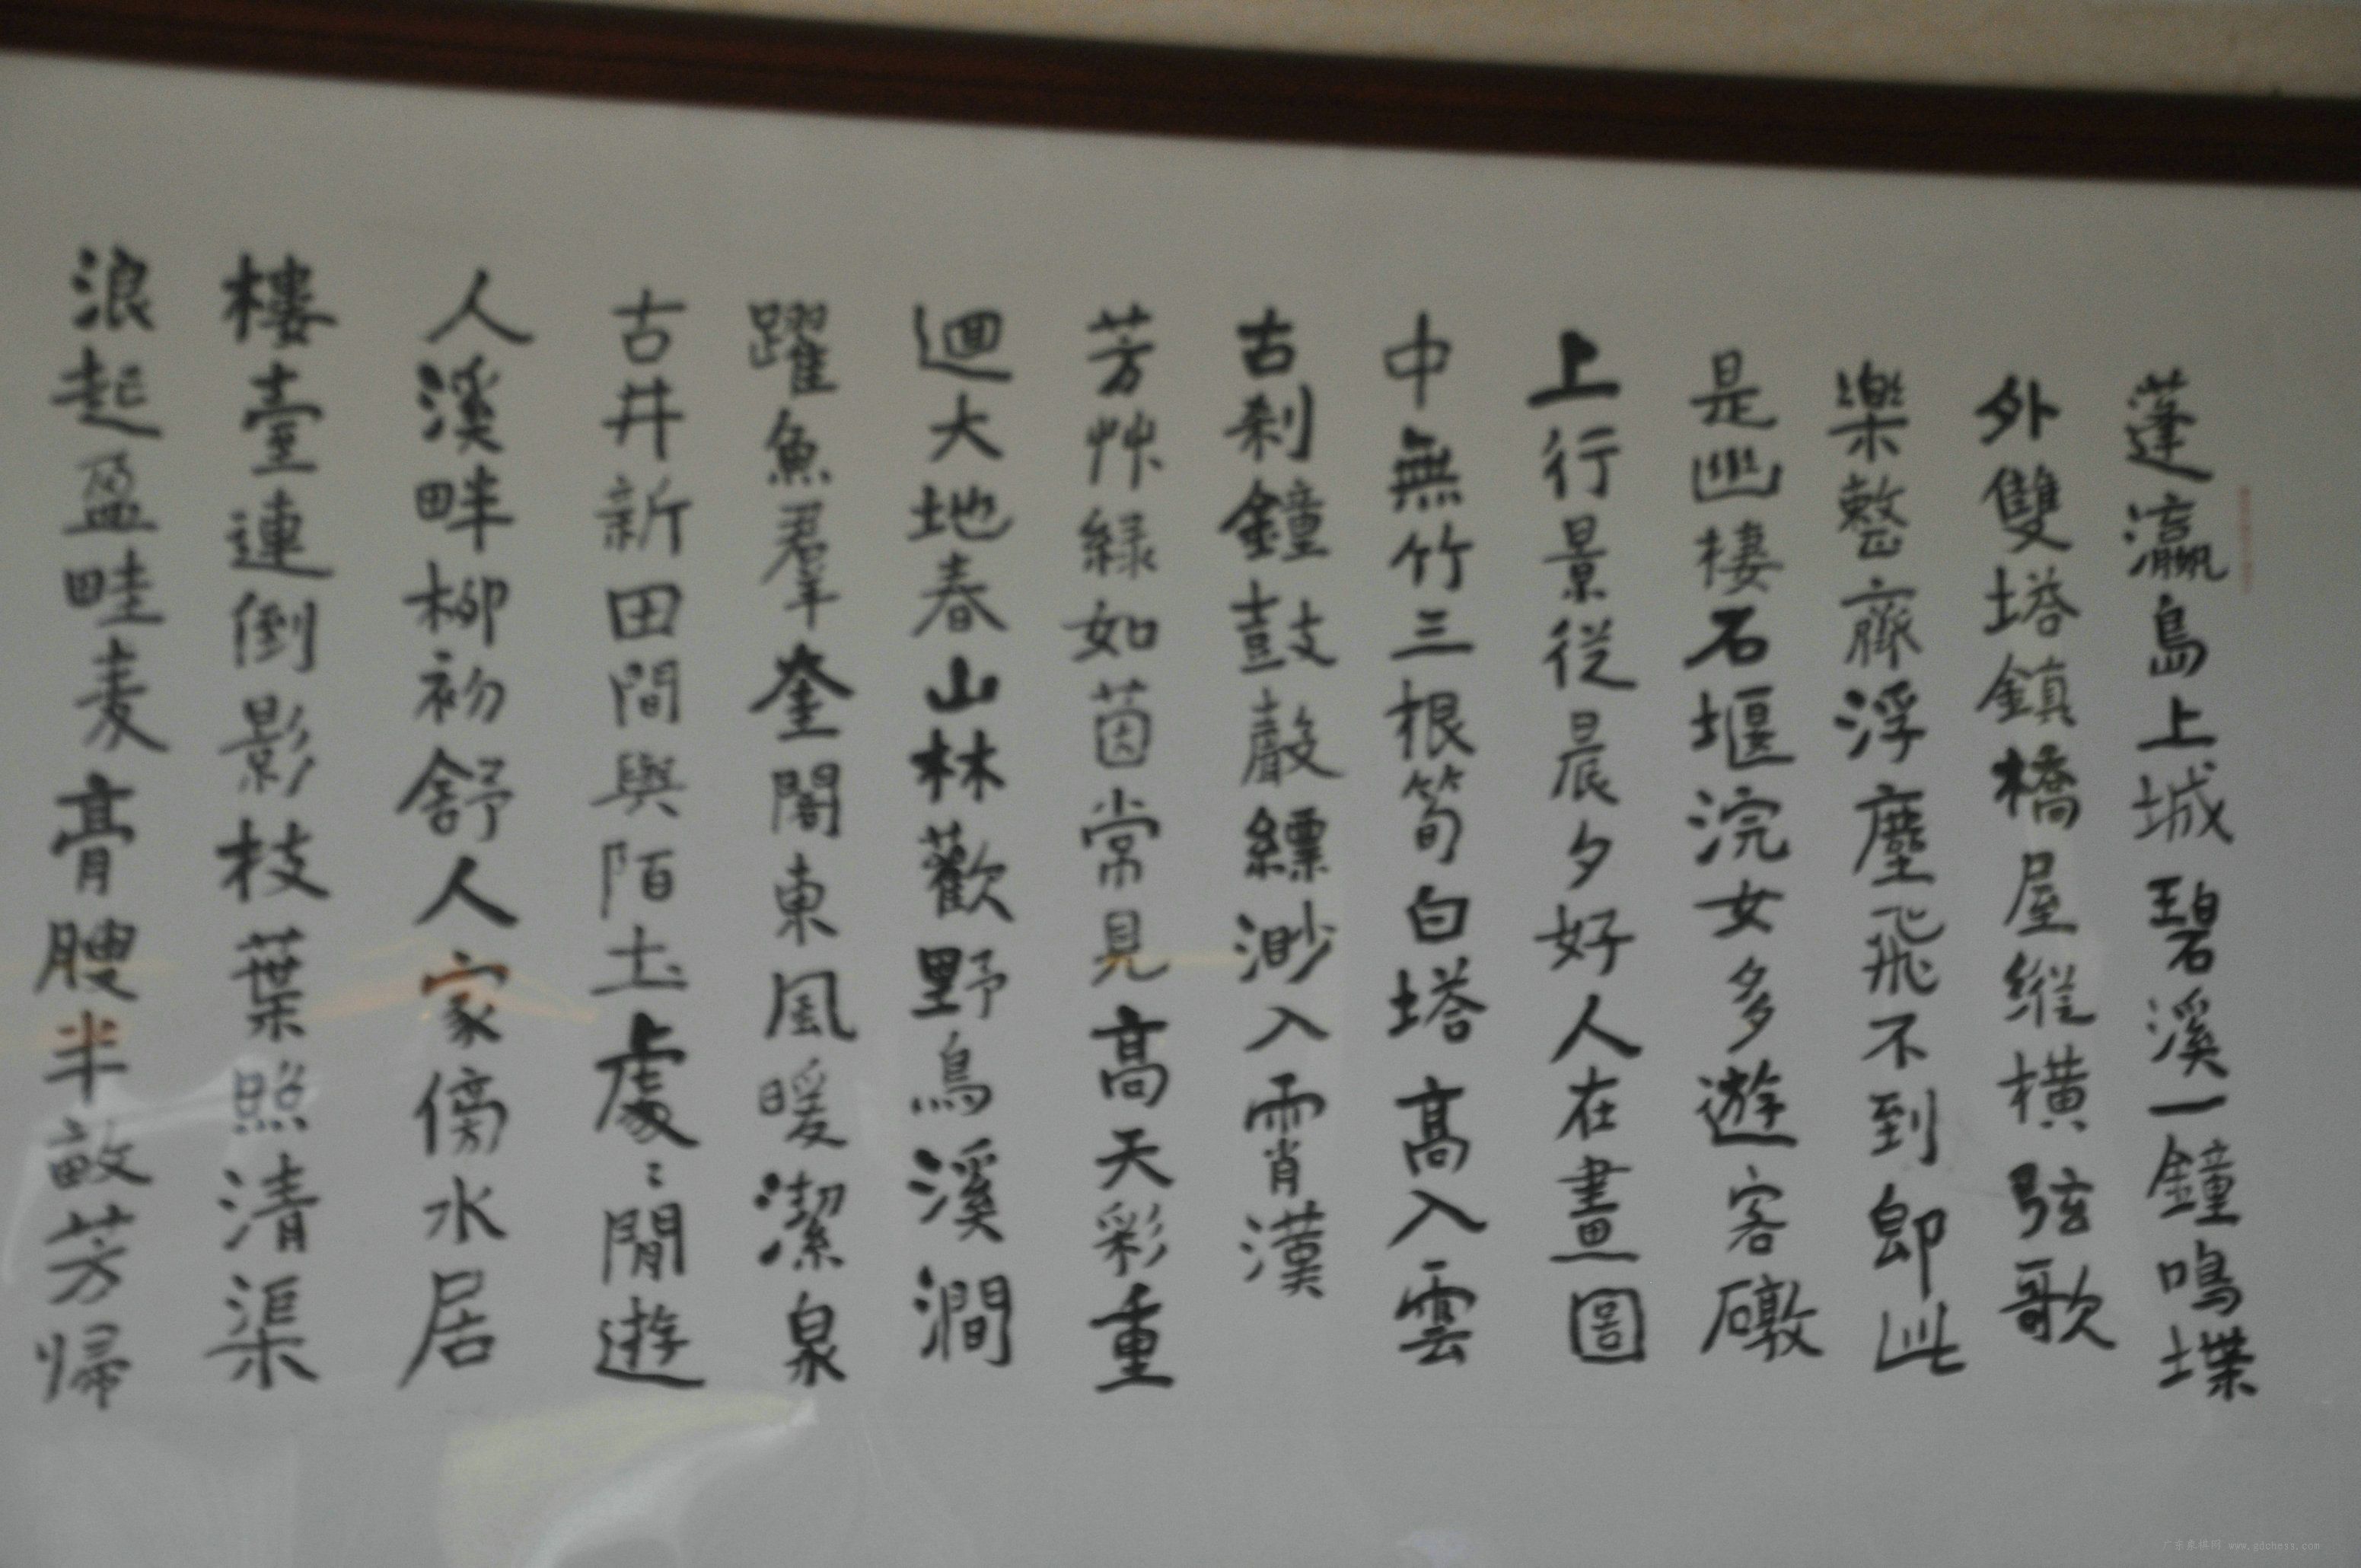 蓬瀛島上城碧溪一鐘鳴堞
外雙塔鎮橋屋縱橫弦歌
樂整齊浮塵飛不到即此
是幽棲石堰浣女多遊客礅
上行景從晨夕好人在畫圖
中無竹三根筍白塔高入雲
古刹鐘鼓嚴縹渺入霄漢
芳艸綠如茵常見高天彩重
迴大地春山林歡野鳥溪澗
躍魚羣奎閣東風暖潔泉
古井新田間與陌土處〻閒遊
人溪畔柳初舒人家傍水居
樓臺連倒影枝葉照清渠
浪起盈畦麦膏腴半畝芳歸
广东象棋网 www.gdchess.com